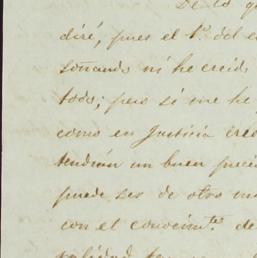 De lo q
diré, pues el 1º del c
soñando ni he creid
todo; pero si me he
como en Justicia cre
tendrán un buen preci
puede ser de otro m
con el conocimto de